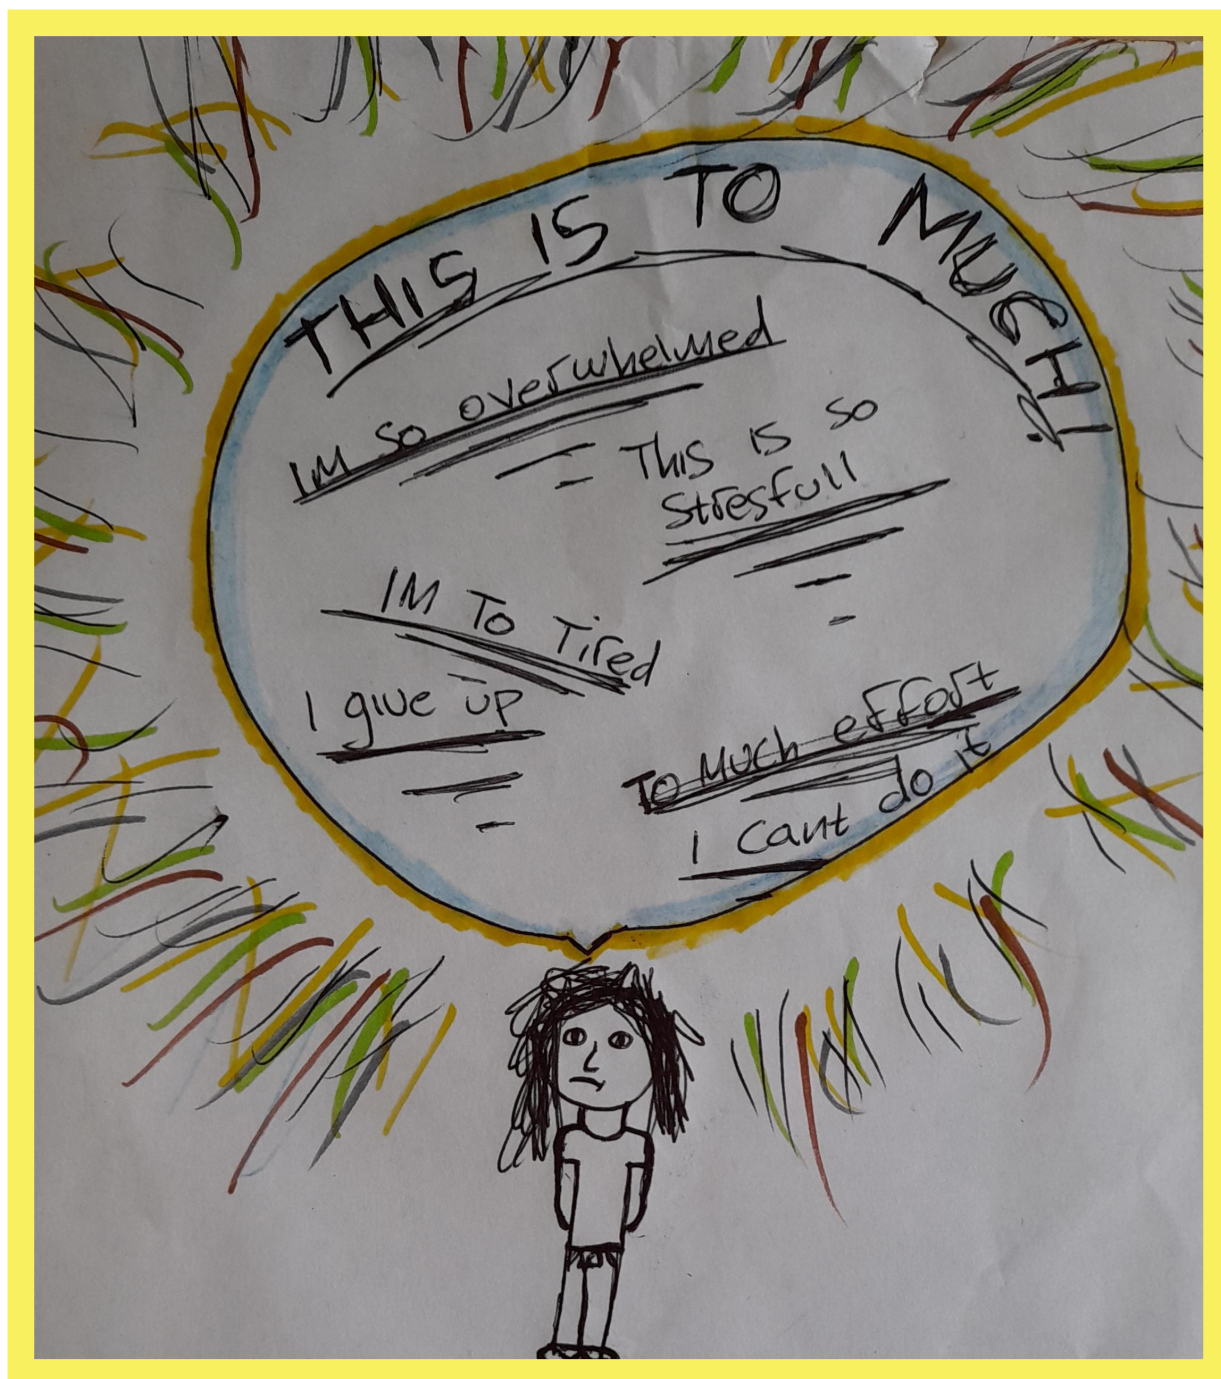 THIS IS TO MUCH!
IM SO overwhelmed
THIS IS SO
Stresfull
IM To Tired
I give up
To MUCH effort
I cant do it